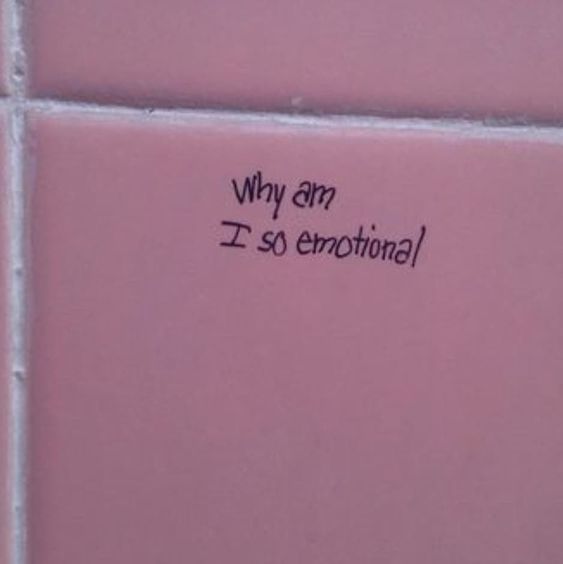 Why am
I so emotional